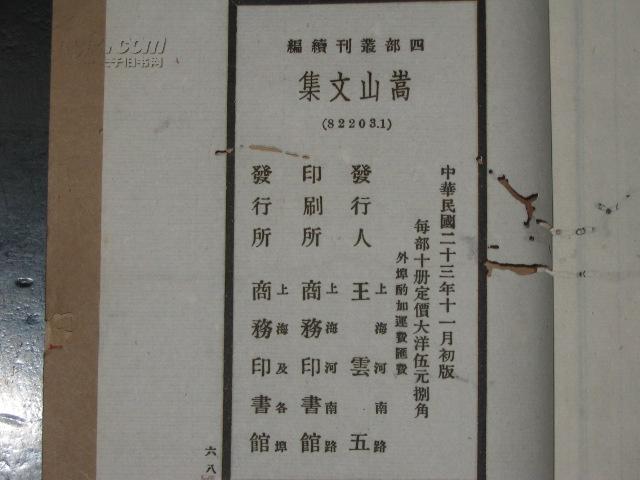 四部叢刊續編
嵩山文集
(82203.1)
中華民國二十三年十一月初版
每部十册定價大洋伍元捌角
外埠酌加運費匯費
發行人 王雲五
上海河南路
印刷所 商務印書館
上海河南路
發行所 商務印書館
上海及各埠
六八